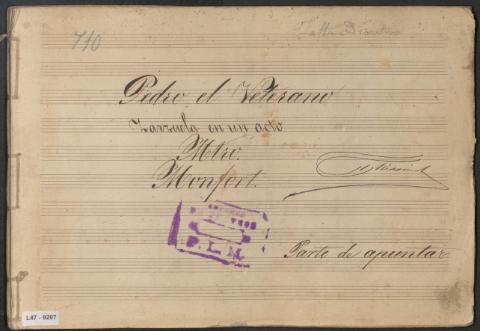 710
Falta
Pedro el Veterano
Zarzuela en un acto
Mtro.
Monfort.
P. L. M.
Parte de apuntar
L47 - 0207